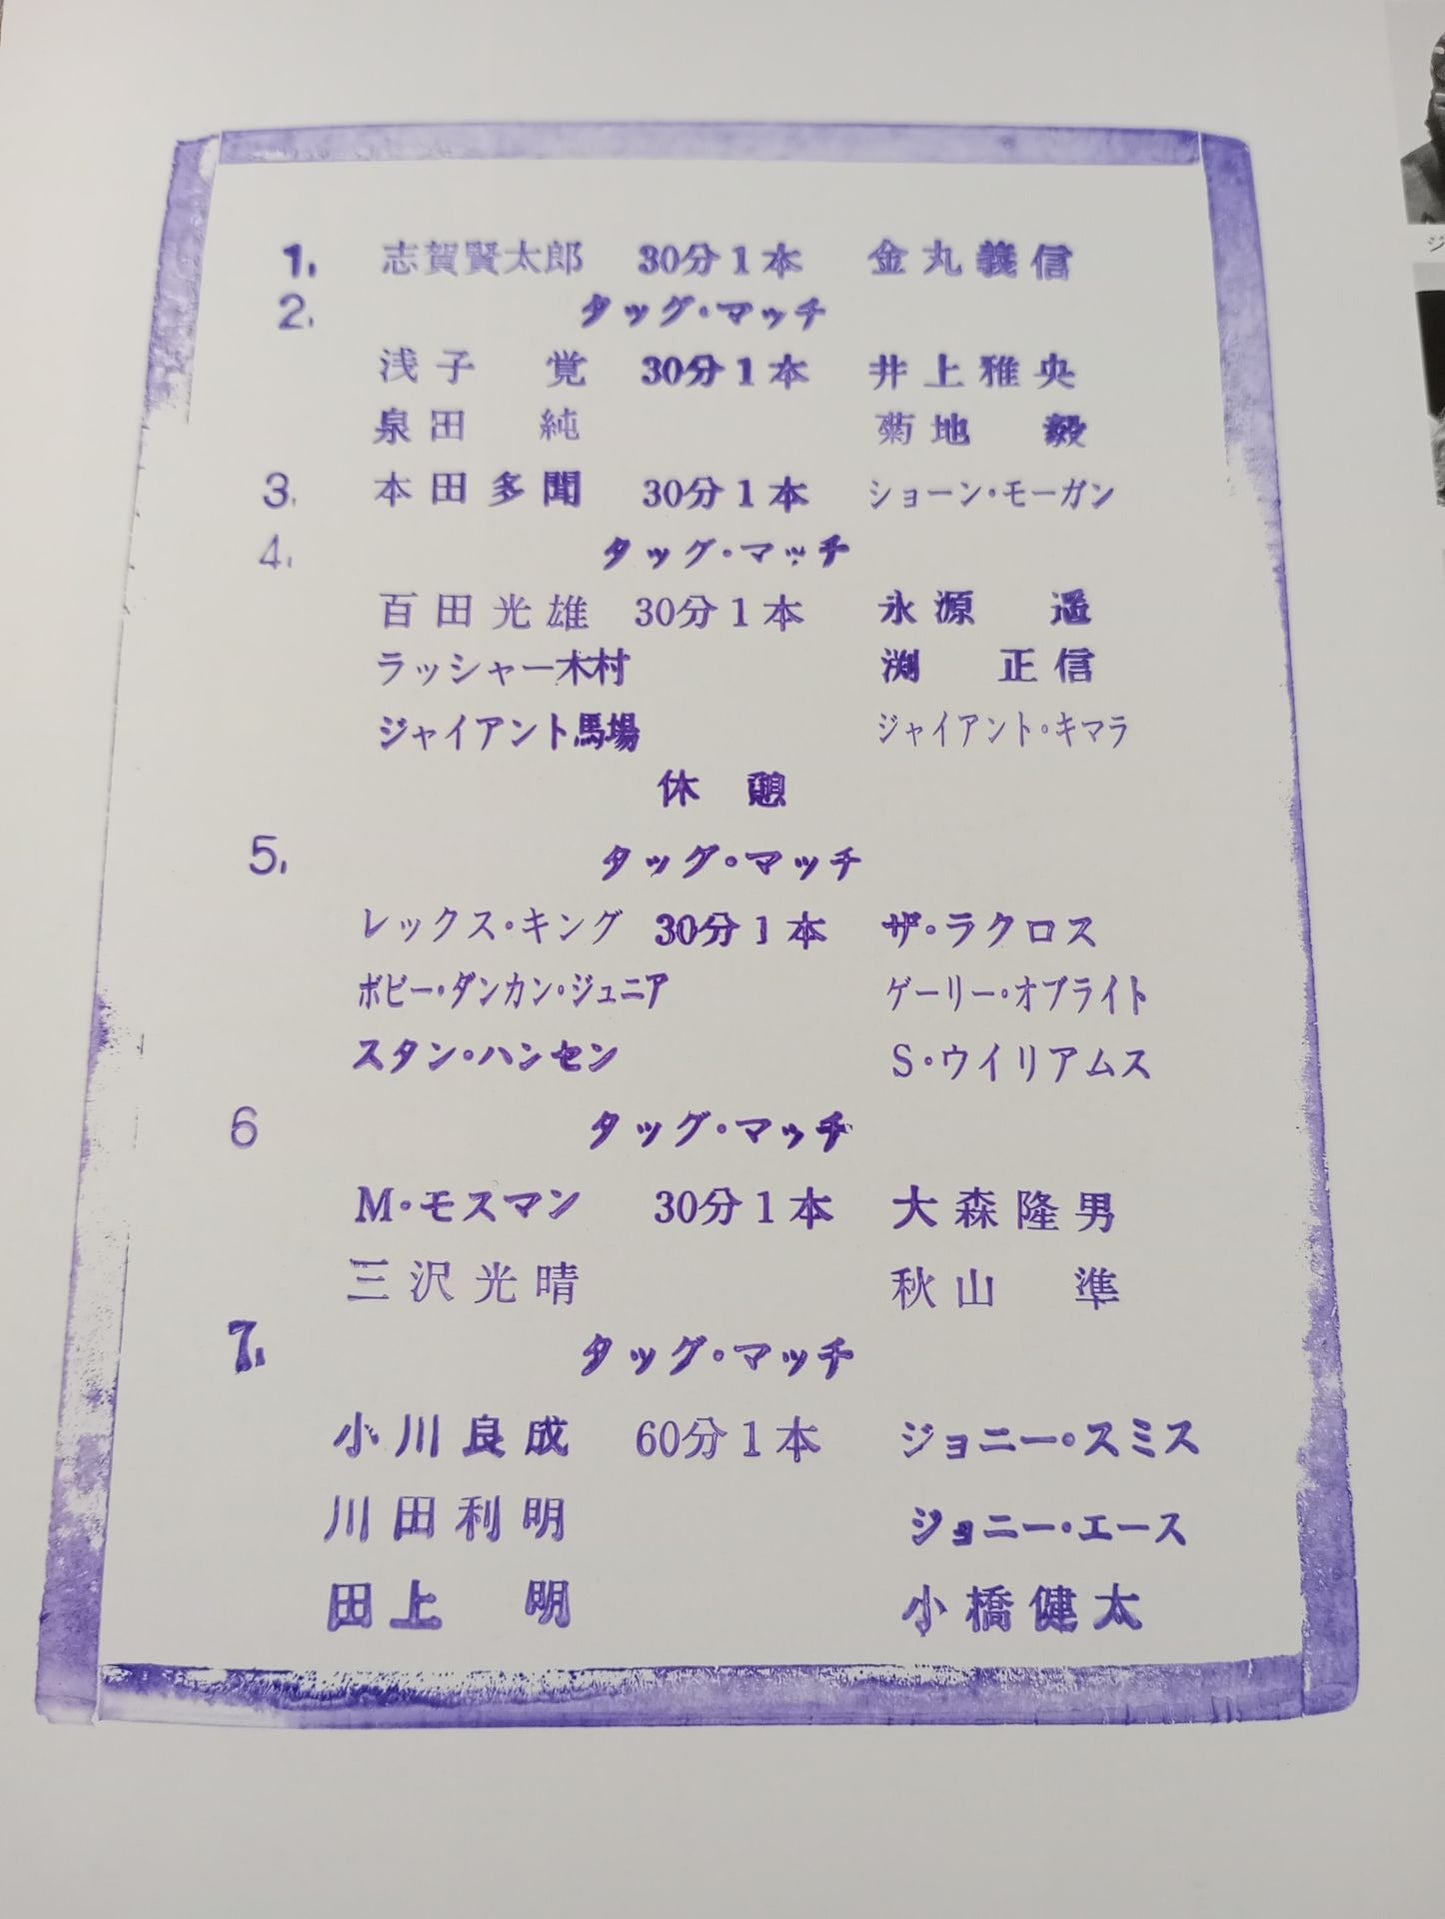 1. 志賀賢太郎 30分1本 金丸義信
2. タッグ・マッチ
浅子 覚 30分1本 井上雅央
泉田 純 菊地 毅
3. 本田多聞 30分1本 ショーン・モーガン
4. タッグ・マッチ
百田光雄 30分1本 永源 遥
ラッシャー木村 渕 正信
ジャイアント馬場 ジャイアント・キマラ
休憩
5. タッグ・マッチ
レックス・キング 30分1本 ザ・ラクロス
ボビー・ダンカン・ジュニア ゲーリー・オブライト
スタン・ハンセン S・ウイリアムス
6 タッグ・マッチ
M・モスマン 30分1本 大森隆男
三沢光晴 秋山 準
7. タッグ・マッチ
小川良成 60分1本 ジョニー・スミス
川田利明 ジョニー・エース
田上 明 小橋健太
ジ